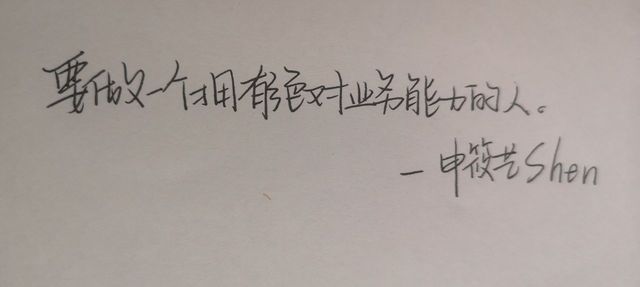 要做一个拥有绝对业务能力的人。
—申筱艺Shen